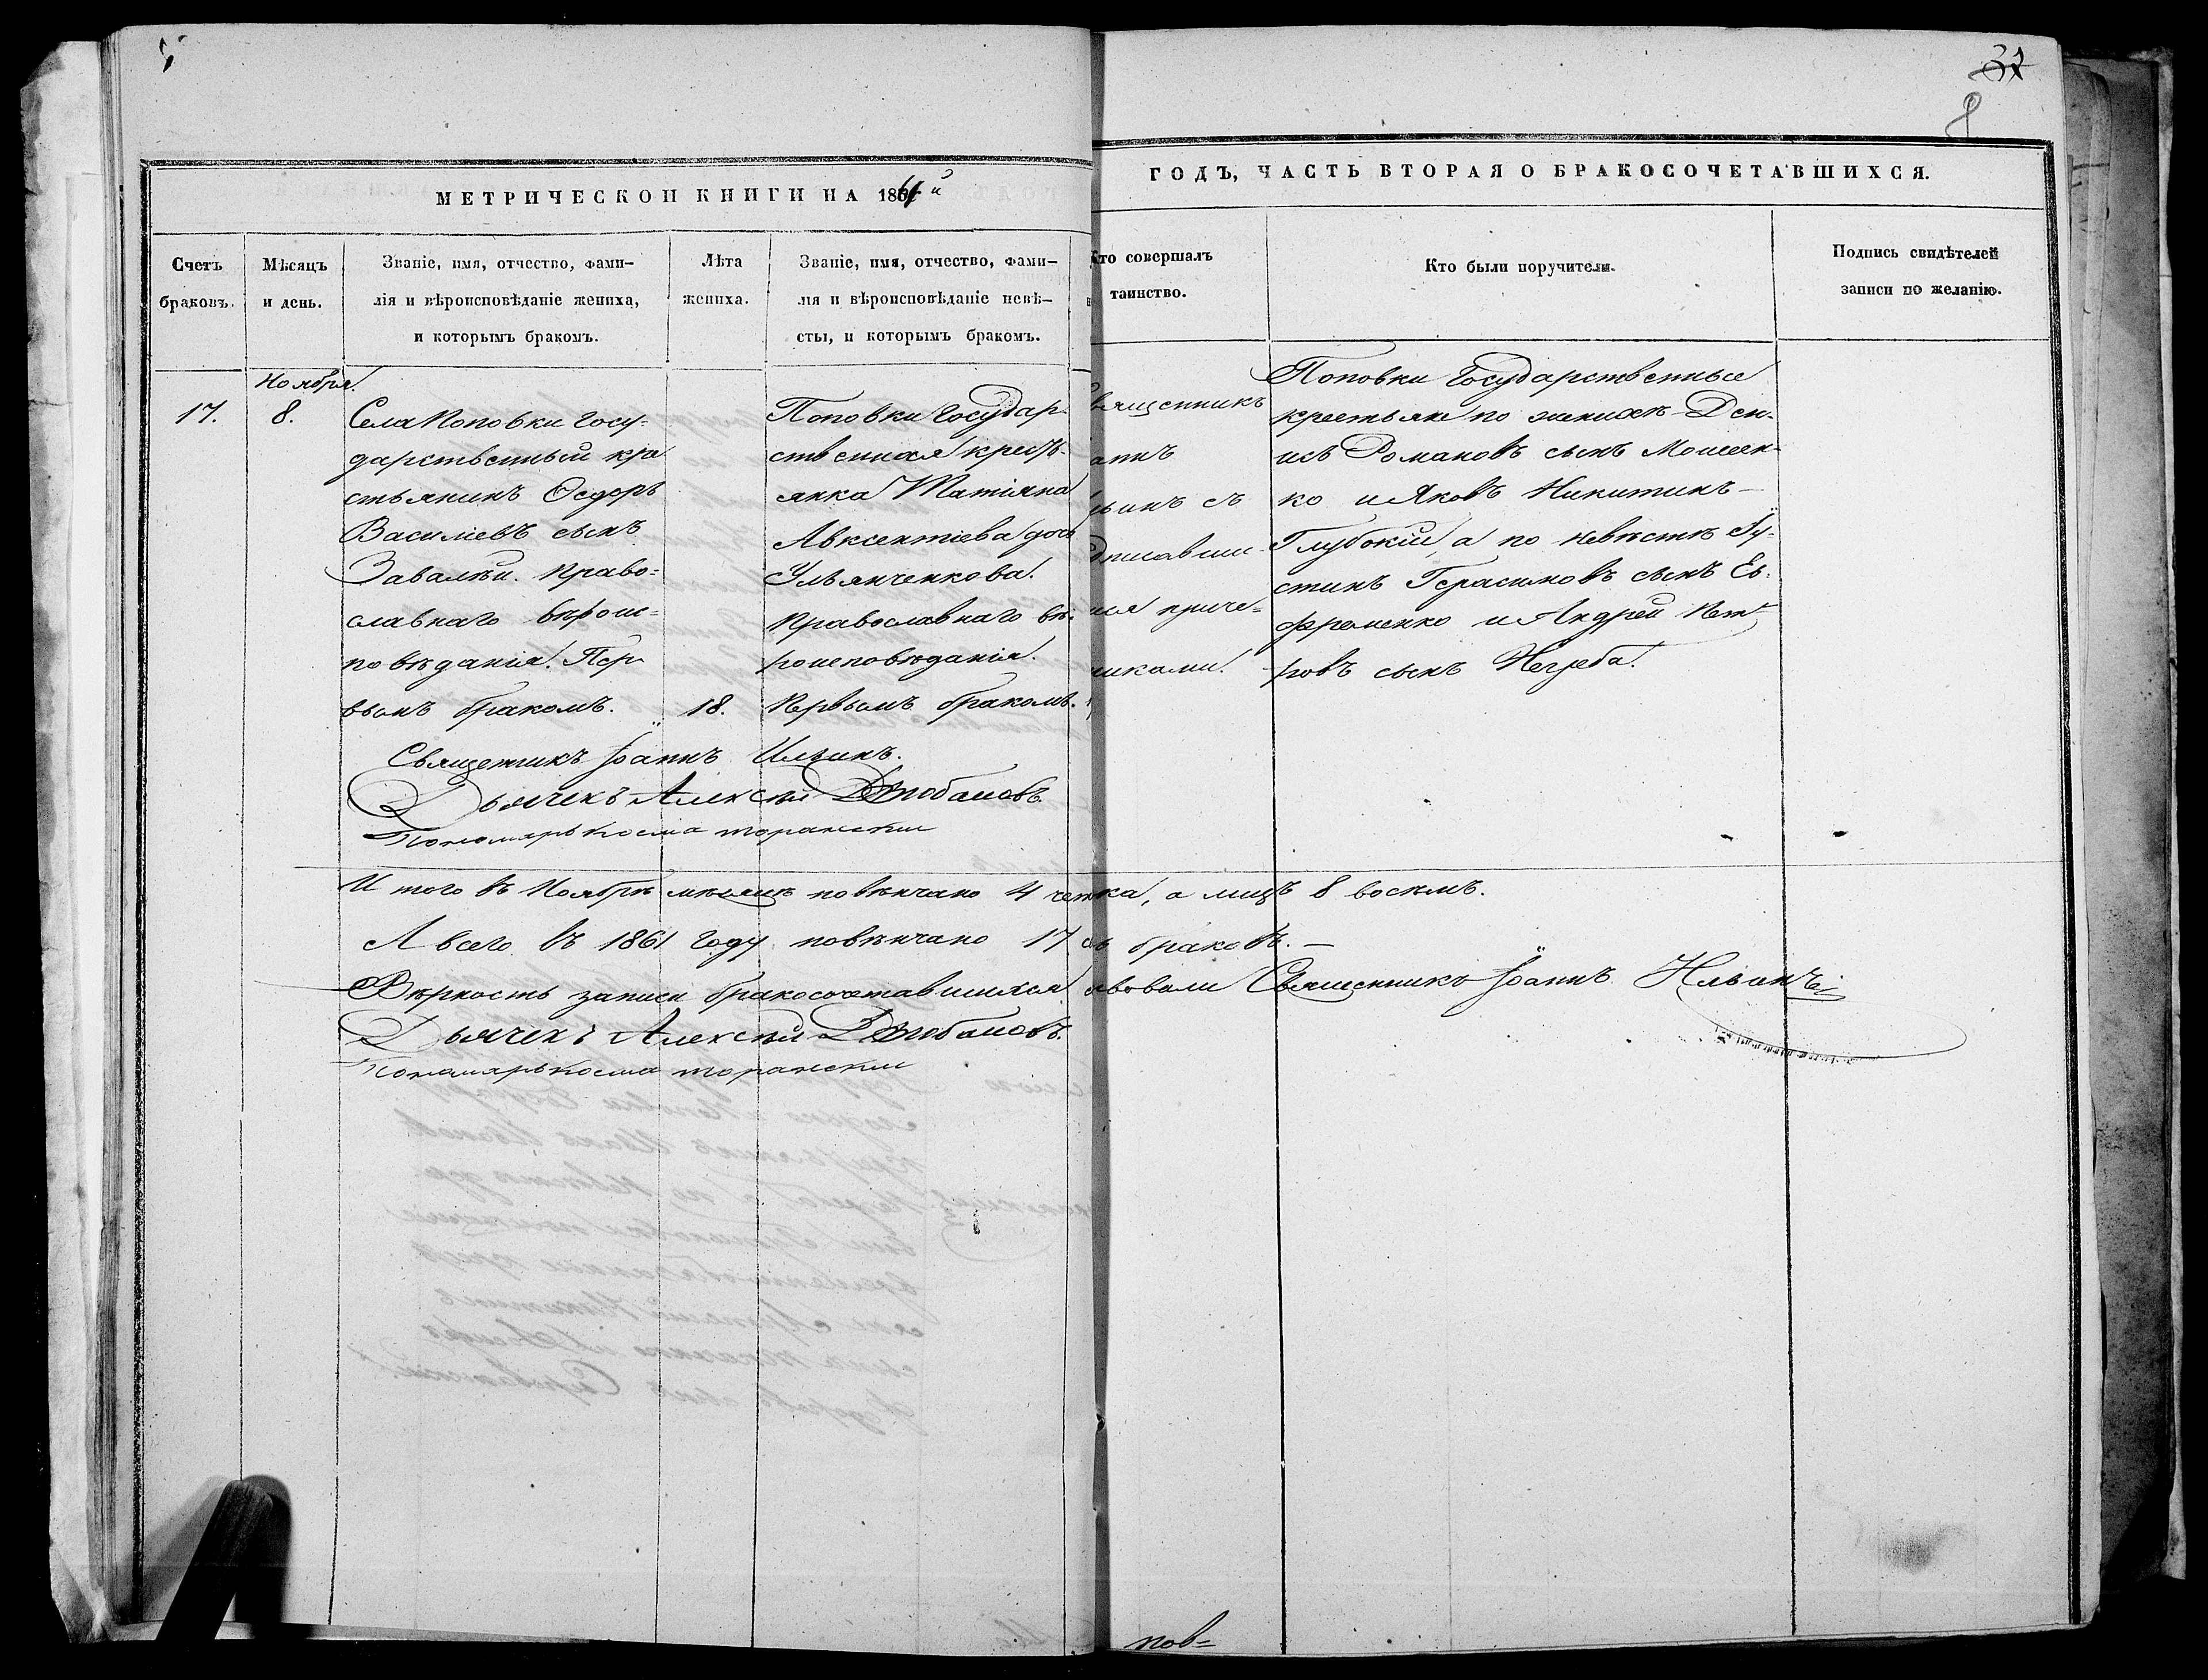 32
8
МЕТРИЧЕСКОЙ КНИГИ НА 1861й
ГОДЪ, ЧАСТЬ ВТОРАЯ О БРАКОСОЧЕТАВШИХСЯ.
Счетъ
браковъ.
Мѣсяцъ
и день.
Званіе, имя, отчество, фами-
лія и вѣроисповѣданіе жениха,
и которымъ бракомъ.
Лѣта
жениха.
Званіе, имя, отчество, фами-
лія и вѣроисповѣданіе невѣ-
сты, и которымъ бракомъ.
Кто совершалъ
таинство.
Кто были поручители.
Подпись свидѣтелей
записи по желанію.
17.
Ноября
8.
Села Поповки Госу-
дарственный кре
стьянинъ Ѳедоръ
Василіевъ сынъ
Завалѣй. Право-
славнаго вѣрои-
повѣданія. Пер-
вымъ бракомъ.
18.
Поповки Государ-
ственная крестъ-
янка Татіяна
Авксентіева дочь
Ульянченкова.
Православнаго вѣ-
роисповѣданія.
Первымъ бракомъ.
Священникъ
аннъ
ьинъ съ
дписавши
мися приче-
никами.
Поповки Государственные
крестьяне по женихѣ Ден-
исъ Романовъ сынъ Моисеен-
ко и Яковъ Никитинъ
Глубокій, а по невѣстѣ Іу-
стинъ Герасимовъ сынъ Ев-
фременко и Андрей Пет-
ровъ сынъ Негреба.
Священникъ Іоаннъ Ильинъ.
Дьячекъ Алексѣй
Пономарь Косма
Итого въ Ноябрѣ мѣсяцѣ повѣнчано 4 четка, а лицъ 8 восемъ.
А всего въ 1861 году повѣнчано 17 браковъ.
Вѣрность записи бракосочетавшихся Священникъ Іоаннъ Ильинъ
Дьячекъ Алексѣй
Пономарь Косма
пов=